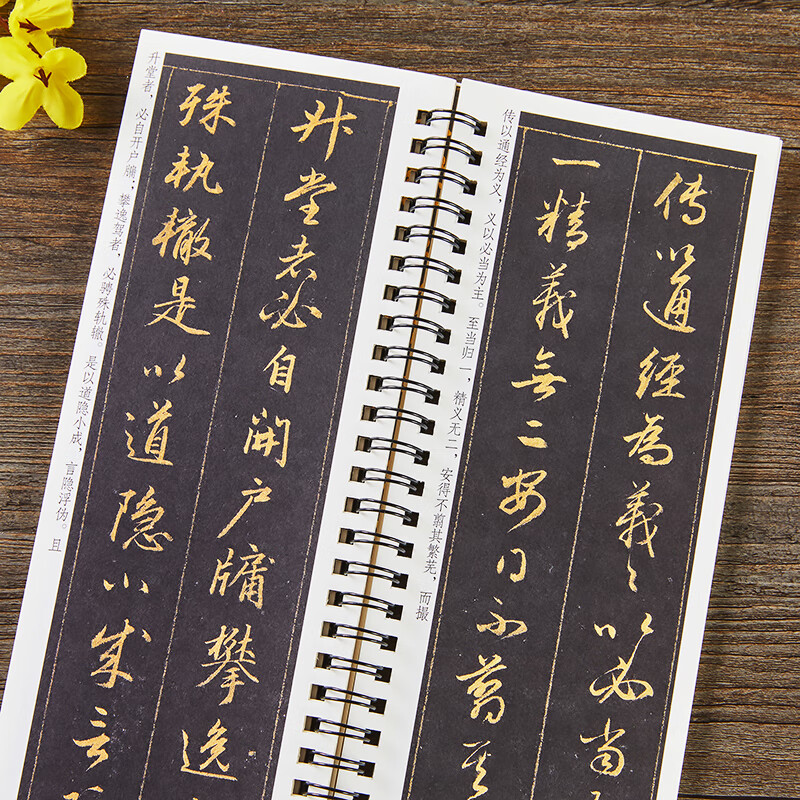 傳以通經為義々以必當
一精義無二安得不翦其
传以通经为义，义以必当为主。至当归一，精义无二，安得不翦其繁芜，而撮
升堂者必自開户牖攀逸
殊軌轍是以道隱小成言
升堂者，必自开户牖；攀逸驾者，必骋殊轨辙。是以道隐小成，言隐浮伪。且